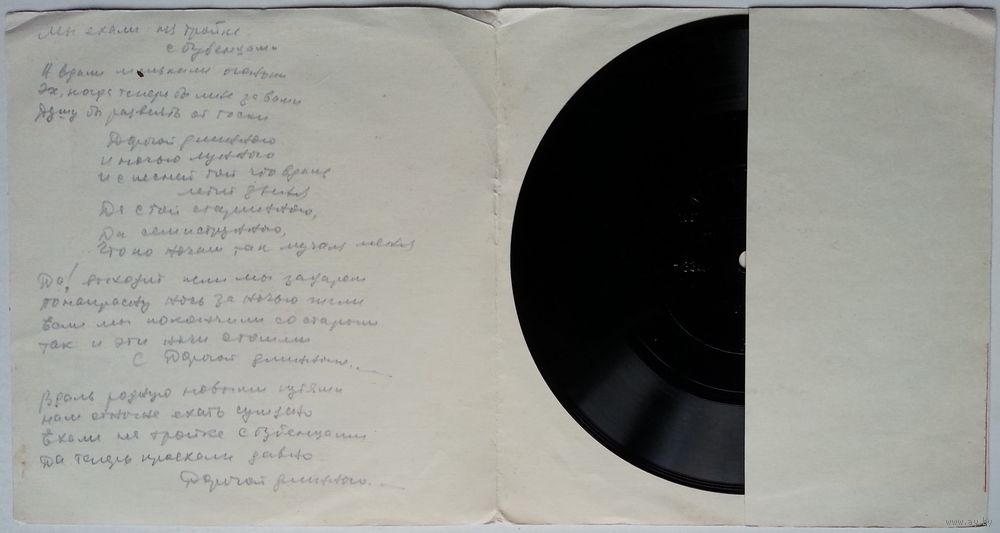 Мы ехали на тройке
с бубенцами
А вдали мелькали огоньки
Эх, когда теперь бы мне за вами
Душу бы развеять от тоски
Дорогой длинною
И ночью лунною
И с песней той что вдаль
летит звеня
Да с той старинною,
Да семиструнною,
Что по ночам так мучала меня
Да! выходит пели мы задаром
Понапрасну ночь за ночью жгли
Если мы покончили со старым
так и эти ночи отошли
С Дорогой длинною...
Вдаль родную новыми путями
нам отныне ехать суждено
Ехали на тройке с бубенцами
Да теперь проехали давно
Дорогой длинною...
www.ay.by